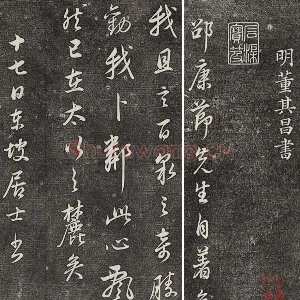 明董其昌書
邵康節先生自著
我且之百泉之奇勝
勸我卜鄰此心飄
然已在太行之麓矣
十七日東坡居士書